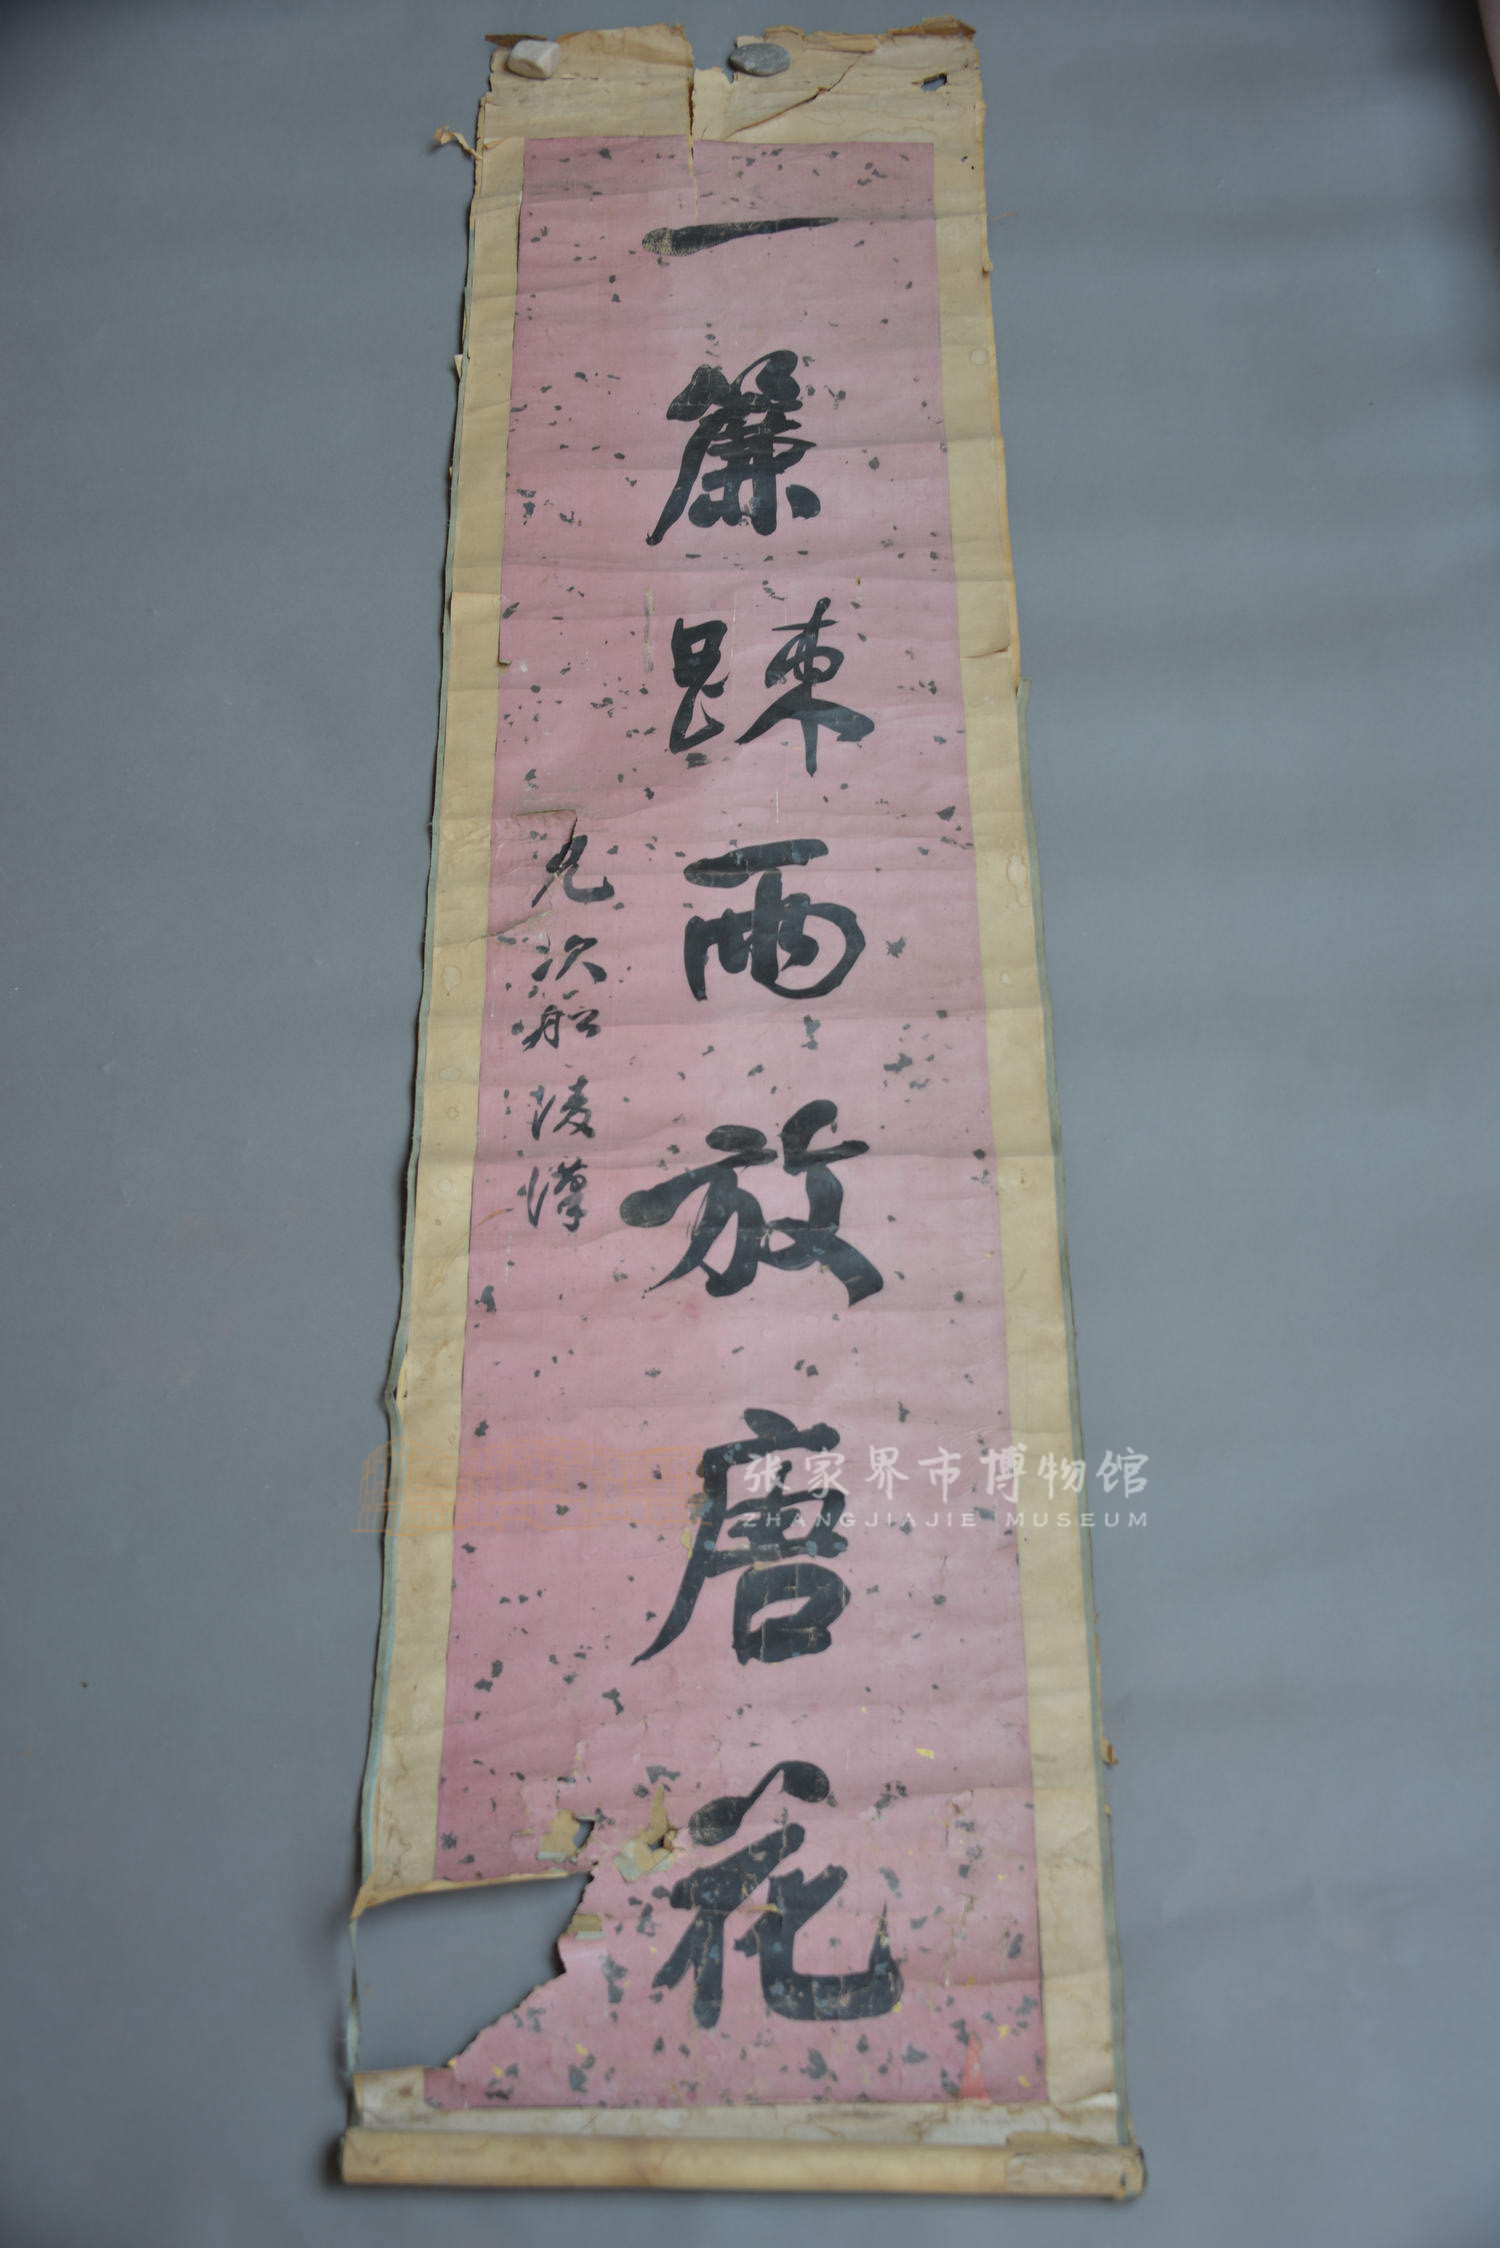 一簾踈雨放唐花
九次舩陵漢
张家界市博物馆
ZHANGJIAJIE MUSEUM